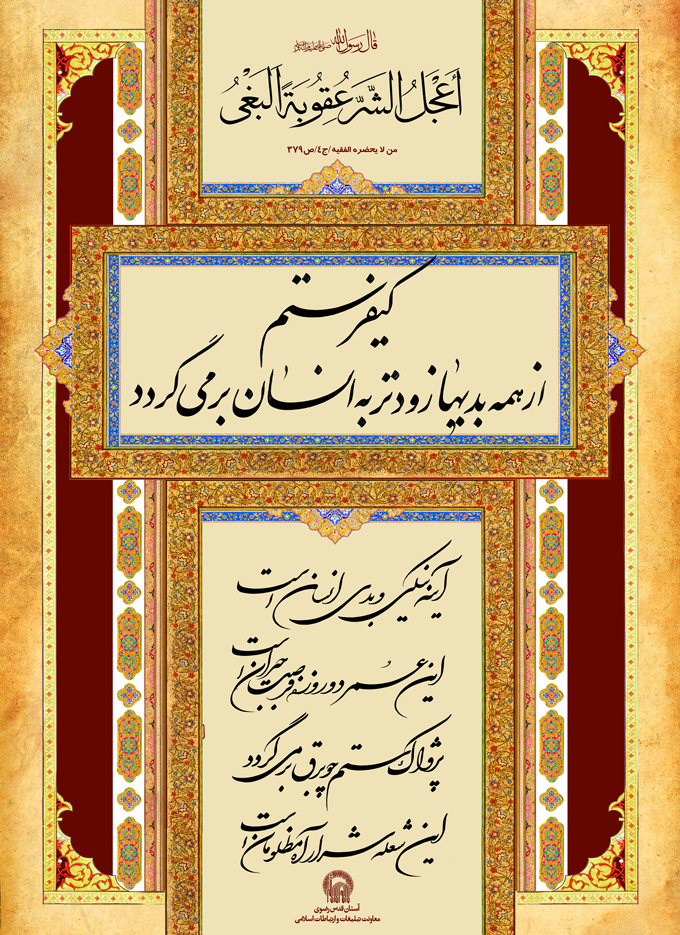 قال رسول الله صلی الله علیه و آله
أَعْجَلُ الشَّرِّ عُقُوبَةً اَلبَغْیُ
من لا یحضره الفقیه/ج٤/ص۳۷۹
کیفر ستم
از همه بدیها زودتر به انسان برمی گردد
آینه نیکی و بدی انسان است
این عمر دو روزه فرصت جبران است
پژواک ستم چو برق برمی گردد
این شعله شرار آه مظلومان است
آستان قدس رضوی
معاونت تبلیغات و ارتباطات اسلامی